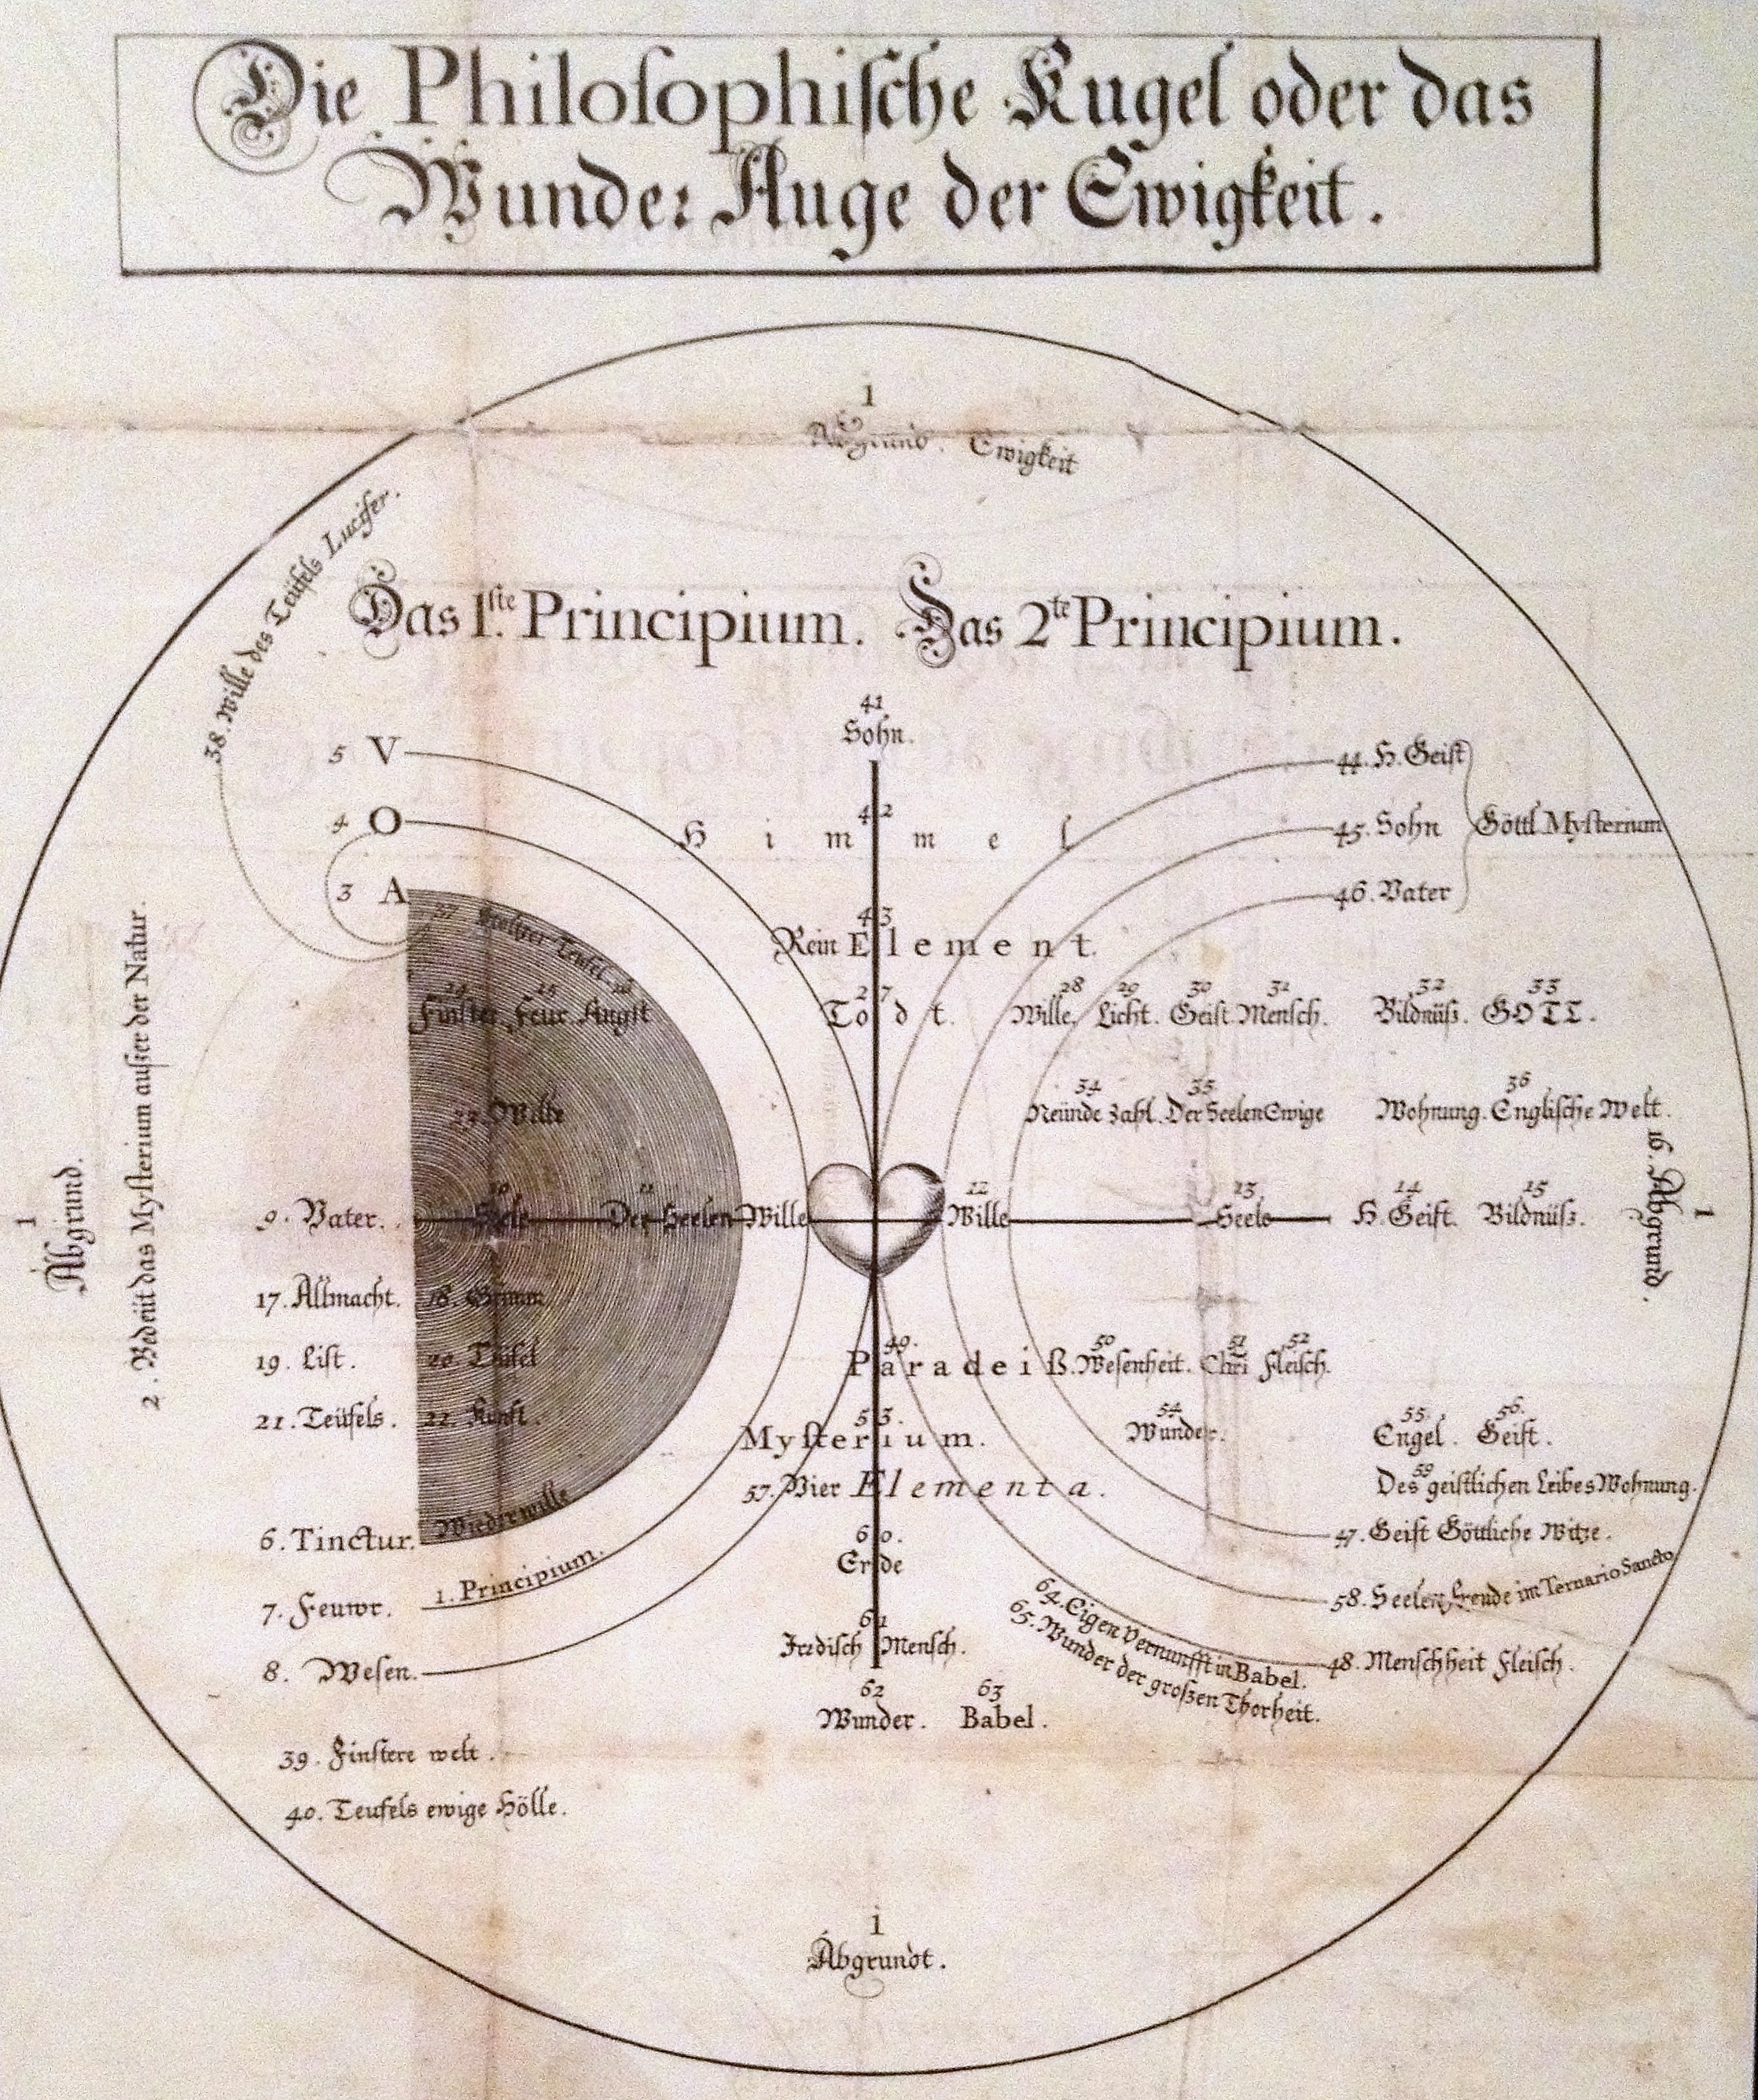 Die Philosophische Kugel oder das
Wunder Auge der Ewigkeit.
1
Abgrund. Ewigkeit
38. Wille des Teüfels Lucifer.
Das 1.ste Principium. Das 2te Principium.
41
Sohn.
5 V
44. H. Geist
4 O
42
Himmel
45. Sohn
Göttl. Mysterium
3 A
46. Vater
37 Stoltzer Teufel
43
Rein Element.
24 25 26
Finster Feur Angst
27
Todt.
28 29 30 31 32 33
Wille. Licht. Geist. Mensch. Bildnüß. GOTT.
34 35 36
Neünde Zahl. Der Seelen Ewige Wohnung. Englische Welt.
23. Welte
1
Abgrund.
2. Bedeüt das Mysterium außer der Natur.
9. Vater.
10
Seele
11
Der Seelen Wille
12
Wille
13
Seele
14
H. Geist.
15
Bildnüß.
16. Abgrund.
1
17. Allmacht. 18. Grimm
19. List. 20. Teüfel
21. Teüfels. 22. Kunst.
49. 50 51 52
Paradeiß. Wesenheit. Chri Fleisch.
53.
Mysterium.
54
Wunder.
55. 56.
Engel. Geist.
57. Vier Elementa.
59
Des geistlichen Leibes Wohnung.
Wiederwille
6. Tinctur.
47. Geist Göttliche Witze.
60.
Erde
1. Principium.
7. Feuwr.
58. Seelen Freude im Ternario Sancto
61
Irrdisch Mensch.
64. Eigen Vernunfft in Babel.
65. Wunder der großen Thorheit.
48. Menschheit Fleisch.
8. Wesen.
62 63
Wunder. Babel.
39. Finstere welt.
40. Teufels ewige Hölle.
1
Abgrundt.